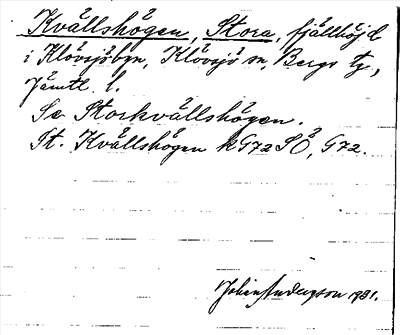 Kvällshögen, Stora, fjällhöjd
i Klövsjöbyn, Klövsjö sn, Bergs tg,
Jämtl. l.
Se Storkvällshögen.
St. Kvällshögen k G72SÖ, G72.
Johan Anderzson 1931.